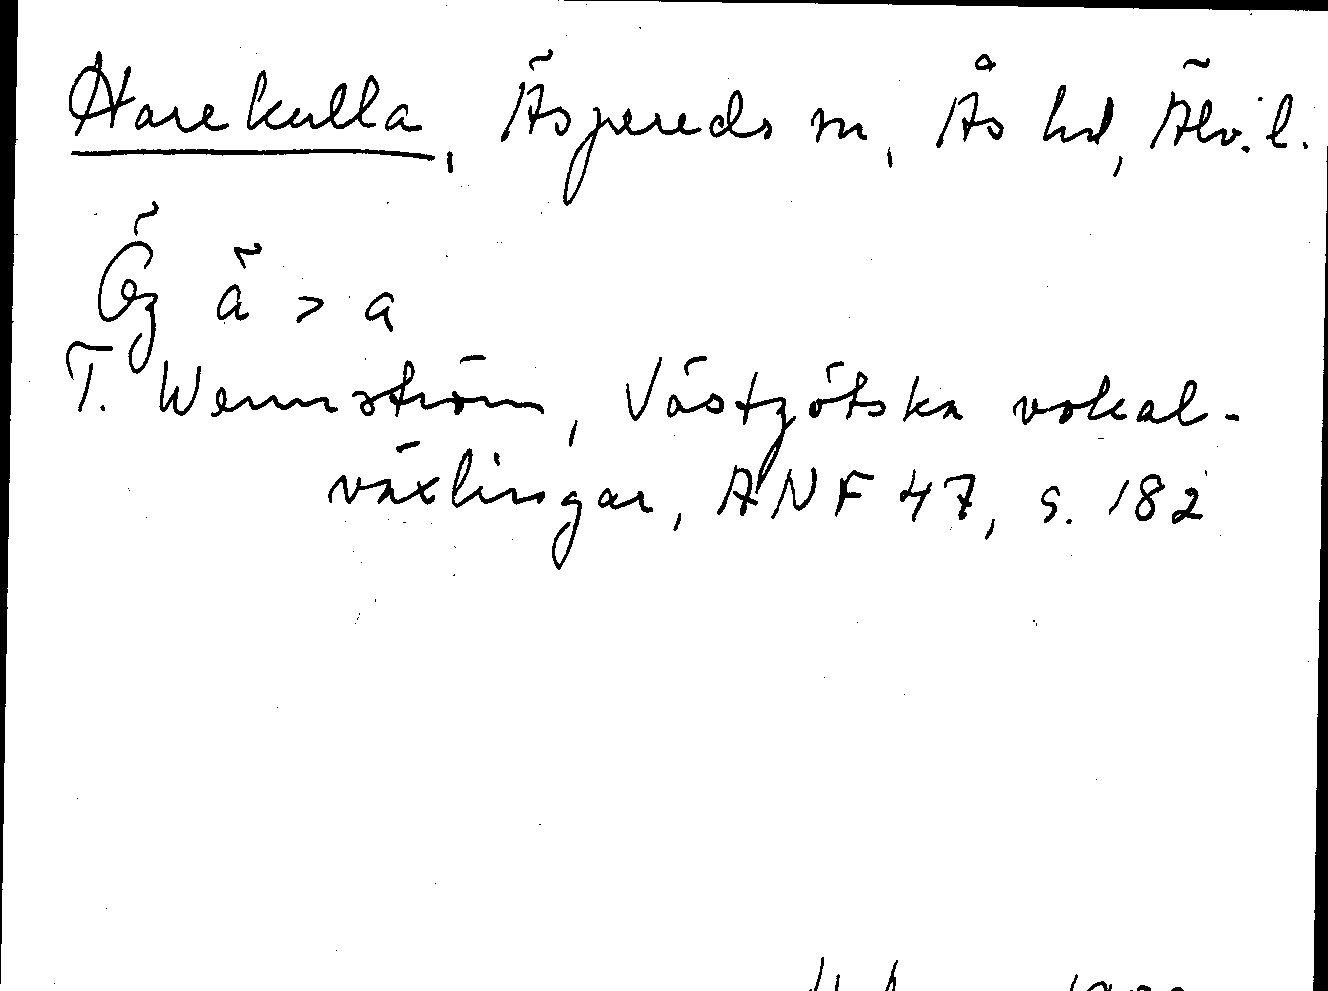 Harekulla, Äspereds sn, Ås hd, Älv.l.
Ög ä > a
T. Wennström, Västgötska vokal-
växlingar, ANF 47, s. 182